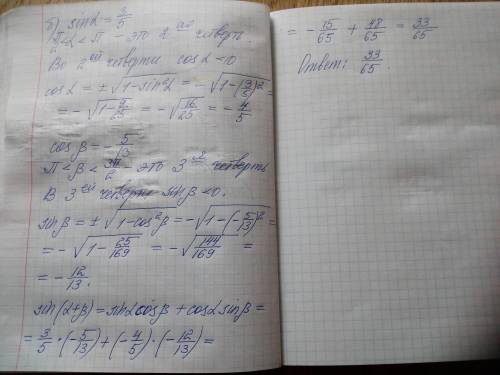 б) sinα = 3/5
π/2 < α < π - это 2-ая четверть
Во 2ой четверти cosα < 0
cosα = ± √(1-sin²α) = - √(1-(3/5)²) =
= - √(1-9/25) = - √(16/25) = - 4/5
cosβ = - 5/13
π < β < 3π/2 - это 3-я четверть
В 3ей четверти sinβ < 0.
sinβ = ± √(1-cos²β) = - √(1-(-5/13)²) =
= - √(1-25/169) = - √(144/169) =
= - 12/13.
sin(α+β) = sinα cosβ + cosα sinβ =
= 3/5 · (-5/13) + (-4/5) · (-12/13) =
= - 15/65 + 48/65 = 33/65
Ответ: 33/65.